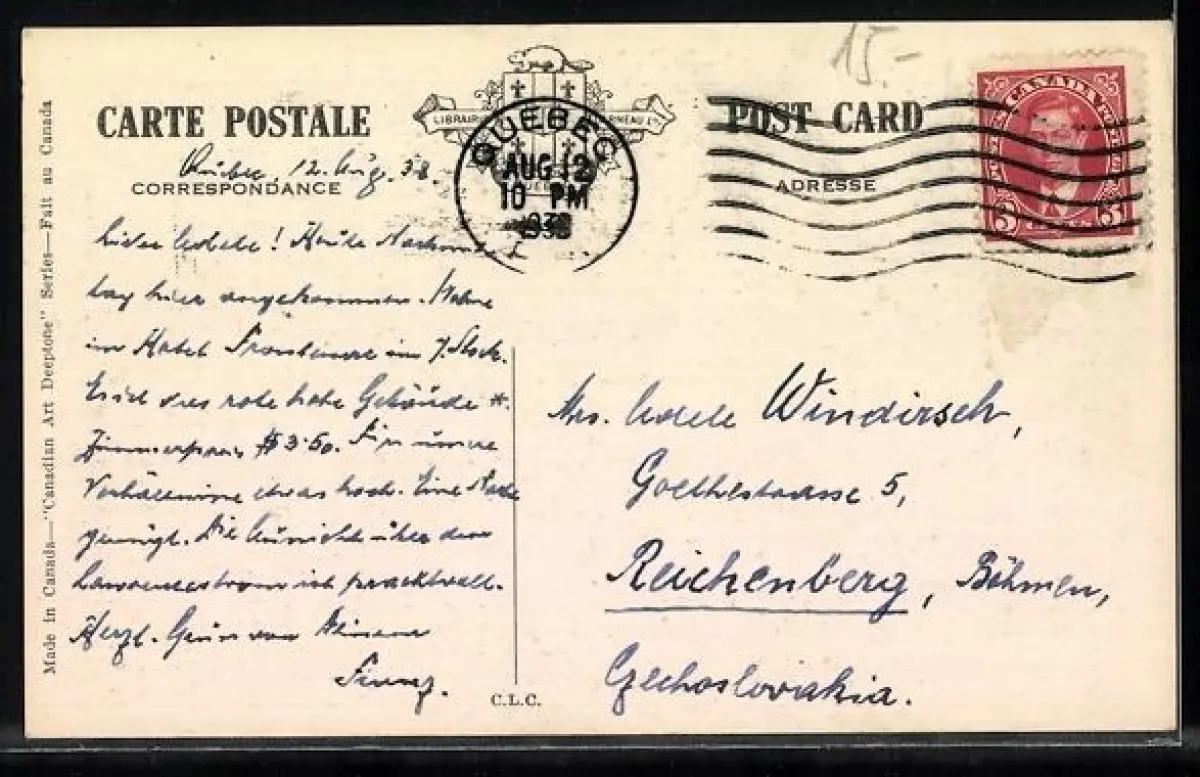 15.-
CARTE POSTALE
POST CARD
LIBRAIRIE GARNEAU LTÉE
QUEBEC
AUG 12
10 PM
1938
CANADA POSTES POSTAGE
3 CENTS 3
CORRESPONDANCE
ADRESSE
Made in Canada—"Canadian Art Deeptone" Series—Fait au Canada
Québec, 12. Aug. 38.
Liebe Adele! Heute Nachmit-
tag hier angekommen. Wohne
im Hotel Frontenac im 7. Stock.
Es ist das rote hohe Gebäude *.
Zimmerpreis $ 3.50. Für unsere
Verhältnisse etwas hoch. Eine Nacht
genügt. Die Aussicht über den
Lawrencestrom ist prachtvoll.
Herzl. Gruss von
Franz.
Mrs. Adele Windirsch,
Goethestrasse 5,
Reichenberg, Böhmen,
Czechoslovakia.
C.L.C.